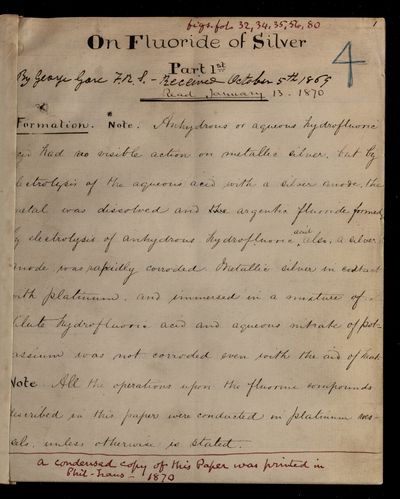 figs. fol. 32, 34, 35, 56, 80
1
On Fluoride of Silver
4
Part 1st
By George Gore F.R.S. - Received October 5th 1869
Read January 13. 1870
Formation. Note. Anhydrous or aqueous hydrofluoric
acid had no visible action on metallic silver, but by
electrolysis of the aqueous acid with a silver anode, the
metal was dissolved and the argentic fluoride formed,
by electrolysis of anhydrous hydrofluoric acid also, a silver
anode was rapidly corroded. Metallic silver in contact
with platinum, and immersed in a mixture of
dilute hydrofluoric acid and aqueous nitrate of pot-
assium was not corroded even with the aid of heat.
Note. All the operations upon the fluorine compounds
described in this paper were conducted in platinum ves-
sels, unless otherwise is stated.
A condensed copy of this Paper was printed in
Phil-Trans - 1870